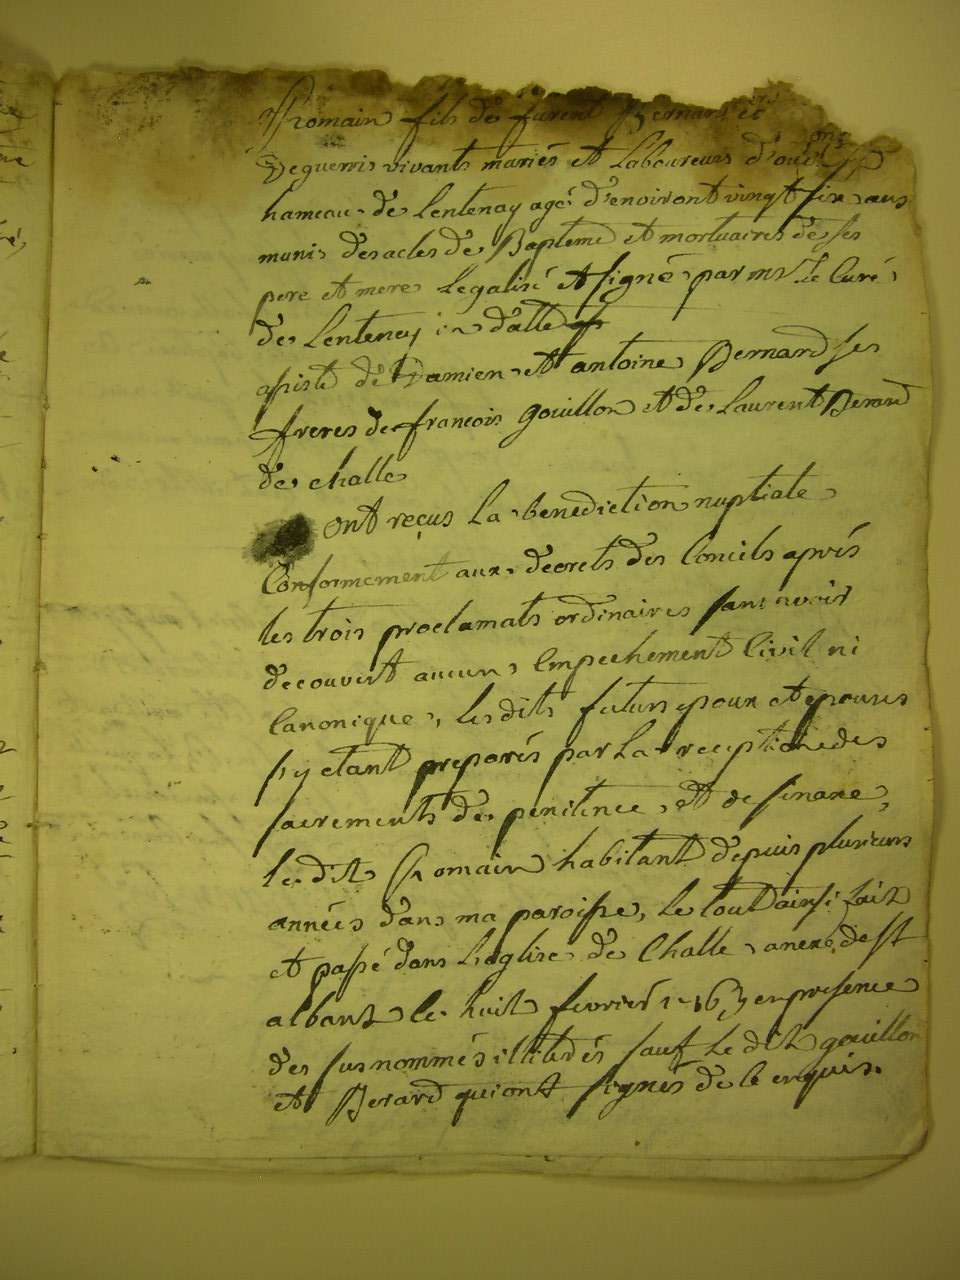 Romain fils de furent Bernard et
Deguerris vivants mariés et Laboureurs d'
hameau de Lentenay agé d'environt vingt six ans
munis des actes de Bapteme et mortuaires de ses
pere et mere Legalisé et signé par mr Le Curé
de Lentenay
assisté de Damien et antoine Bernard ses
freres de francois gouillon et de Laurent Berard
de challe
ont reçus La benediction nuptiale
Conformement aux decrets des Concils après
les trois proclamats ordinaires sans avoir
decouvert aucun Empechement Civil ni
Canonique, les dits futurs epoux et epouses
s'y etant preparés par La reception des
sacrements de penitence et de
le dit Romain habitant depuis plusieurs
années dans ma paroisse, Le tout ainsi fait
et passé dans L'eglise de Challe anexe de st
albant le huit fevrier 1763 en presence
des sus nommés illitérés sauf Le dit gouillon
et Berard qui ont signés de ce enquis.